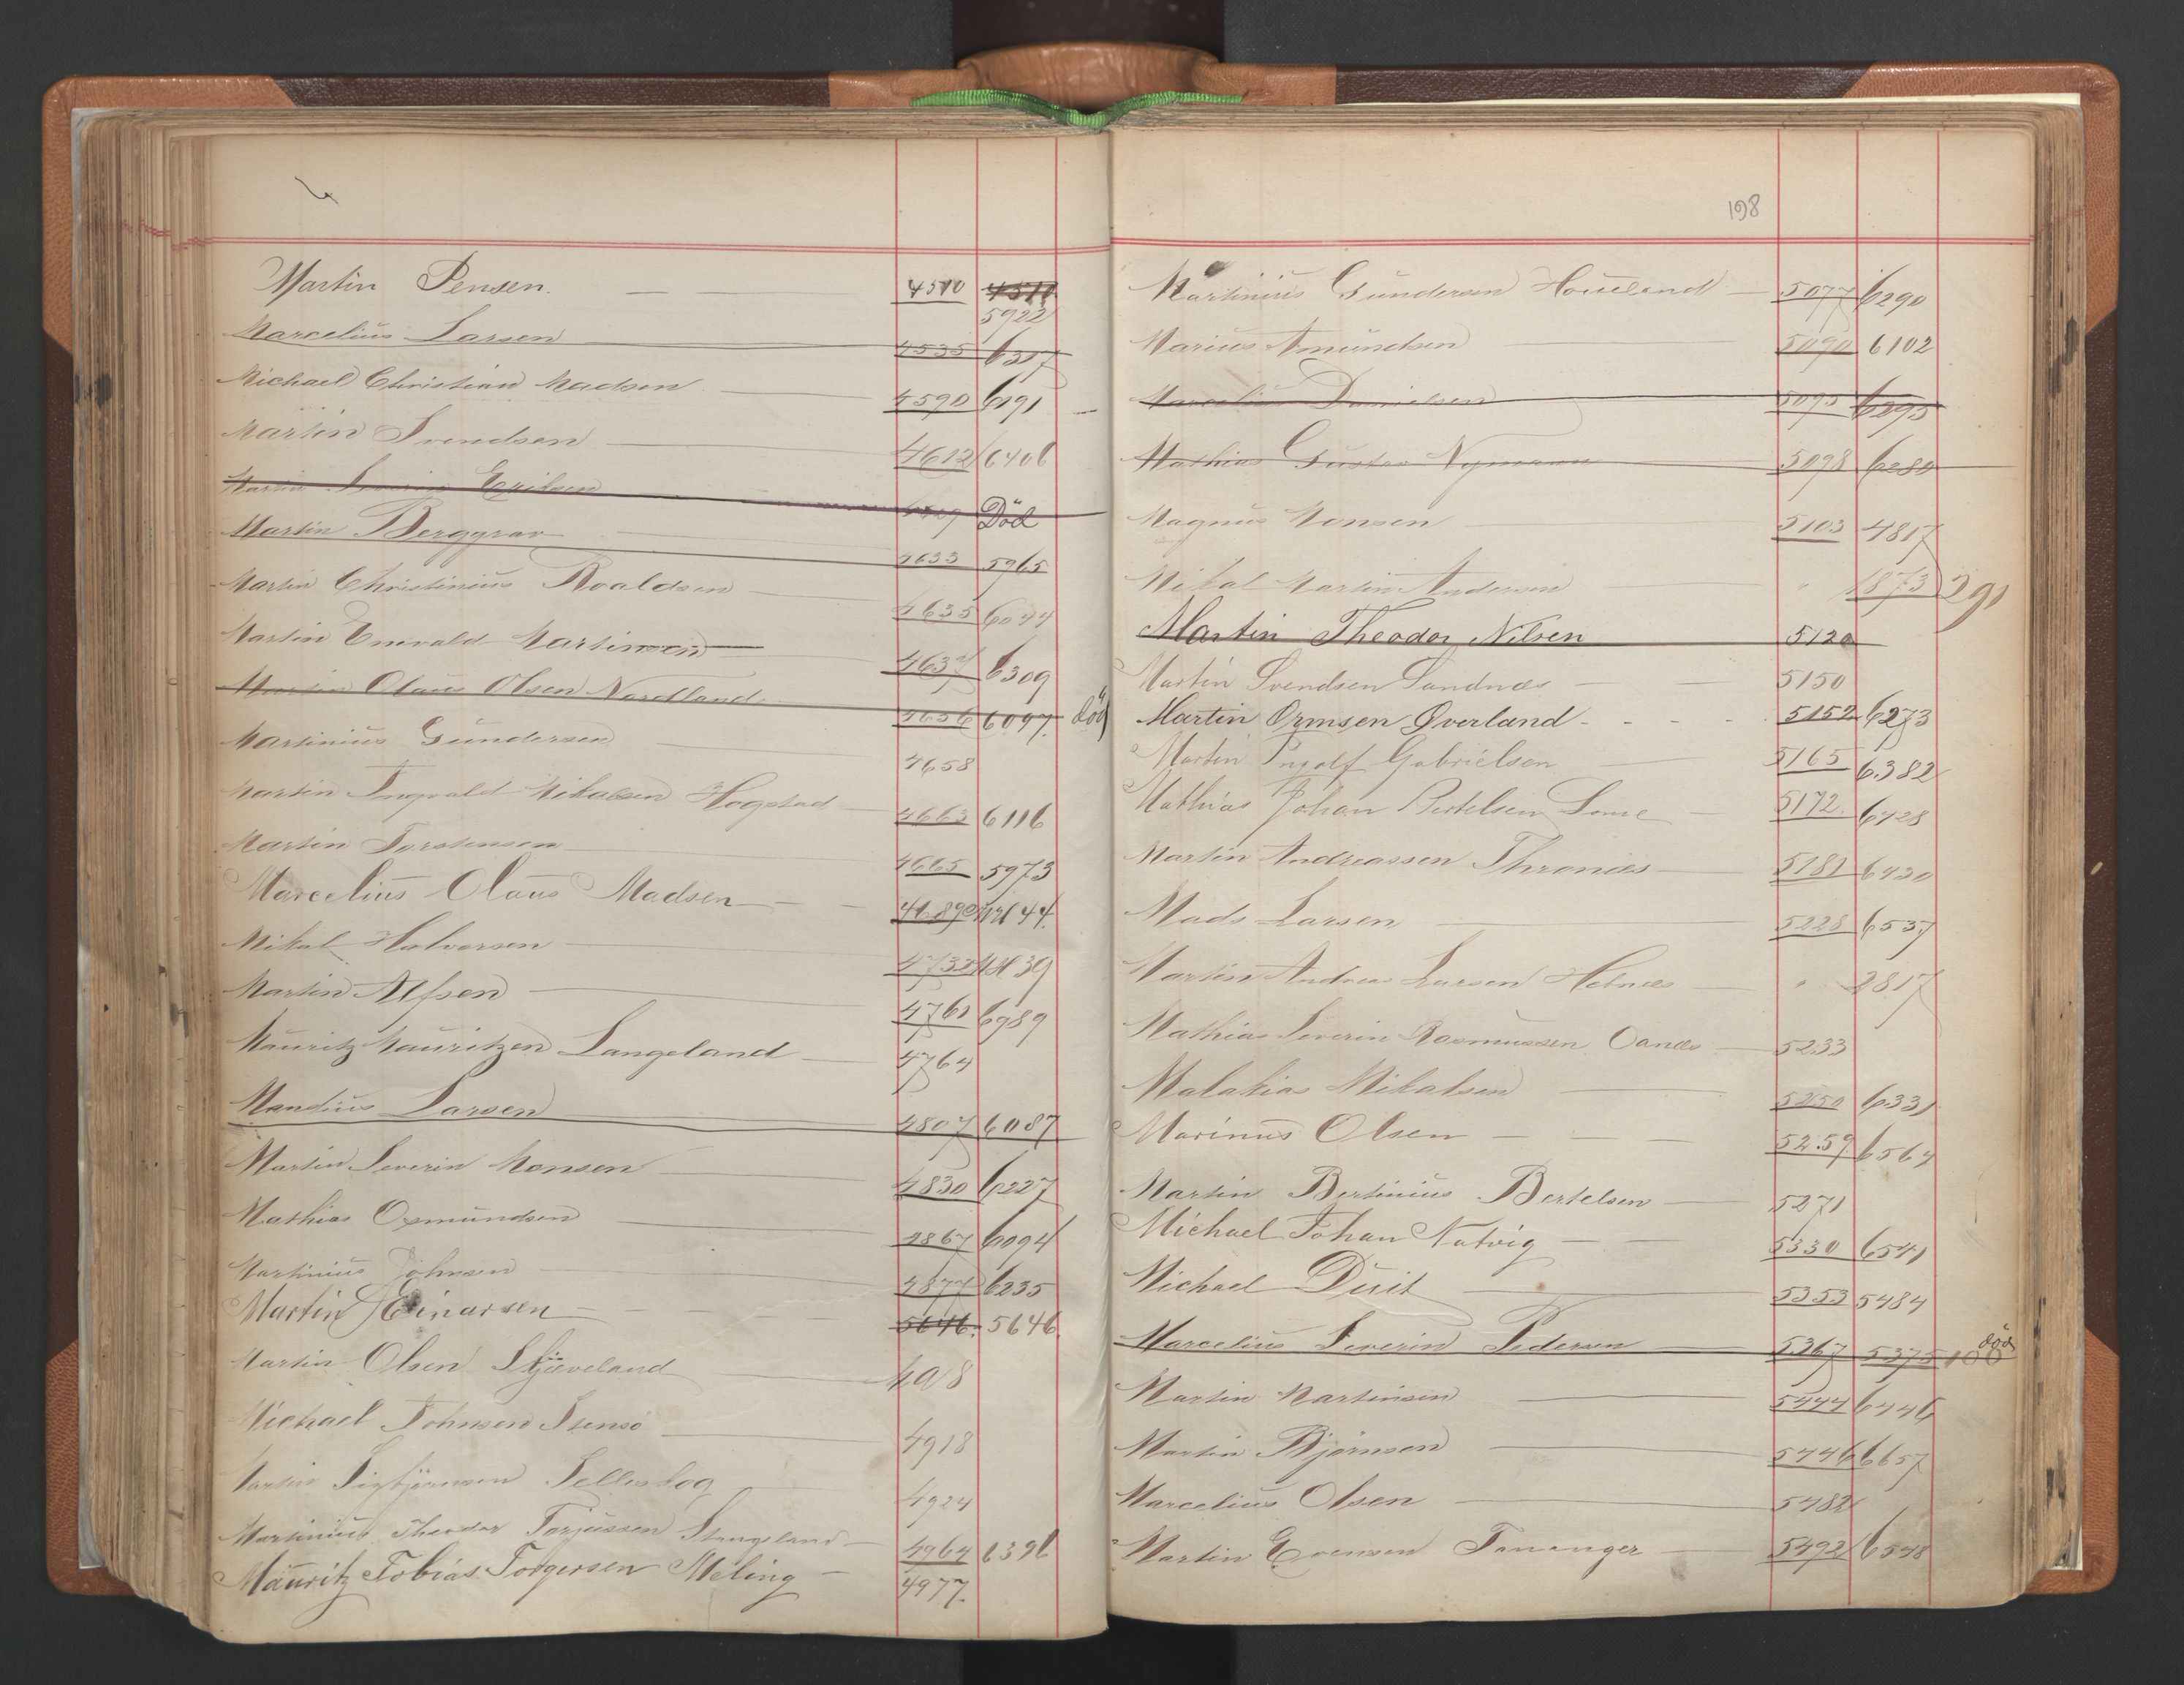 Martin Pensen. 4510 4510
5922
Marcelius Larsen 4535 6317
Michael Christian Madsen 4590 6191
Martin Svendsen 4612 6406
Martin Severin Eriksen Död
Martin Berggrav 4633 5965
Martin Christinius Roaldsen 4635 6044
Martin Enevald Martinsen 4637 6309
Martin Olaus Olsen Nordland 4656 6097. död
Martinius Gundersen 4658
Martin Ingvald Mikalsen Hogstad 4663 6116
Martin Torstensen 4665 5973
Marcelius Olaus Madsen 4689 44.
Mikal Halvorsen 4732 39
Martin Alfsen 4761 6989
Mauritz Mauritzen Langeland 4764
Mandius Larsen 4807 6087
Martin Severin Monsen 4830 6227
Mathias Osmundsen 4867 6094
Martinius Johnsen 4877 6235
Martin Einarsen 5646. 5646
Martin Olsen Skjæveland
Michael Johnsen Stensö 4918
Martin Sigbjörnsen Selleskog 4924
Martinius Theodor Torjussen Stangeland 4964 6396
Mauritz Tobias Torgersen Meling 4977.
198
Martinius Gundersen Houeland 5077 6290
Marius Amundsen 5090 6102
Marcelius Danielsen 5095 6295
Mathias Gustav Nymann 5098 6280
Magnus Monsen 5103 4817
Mikal Martin Andersen " 1873 291
Martin Theodor Nilsen 5120
Martin Svendsen Sandnæs 5150
Martin Ormsen Øverland 5152 6273
Martin Ingolf Gabrielsen 5165 6382
Mathias Johan Bertelsen Lome 5172. 6428
Martin Andreassen Thronæs 5181 6430
Mads Larsen 5228 6537
Martin Andreas Larsen Helnæs " 2817
Mathias Severin Rasmussen Oanes 5233
Malakias Mikalsen 5250 6331
Marinus Olsen 5259 6564
Martin Bertinius Bertelsen 5271
Michael Johan Natvig 5330 6541
Michael Duit 5353 5484
Marcelius Severin Pedersen 5367 5375 död
Martin Martinsen 5444 6446
Martin Bjørnsen 5446 6657
Marcelius Olsen 5482
Martin Evensen Tananger 5492 6548